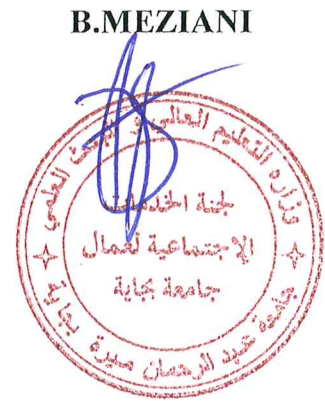 B.MEZIANI
وزارة التعليم العالي و البحث العلمي
لجنة الخدمات
الإجتماعية لعمال
جامعة بجاية
جامعة عبد الرحمان ميرة بجاية